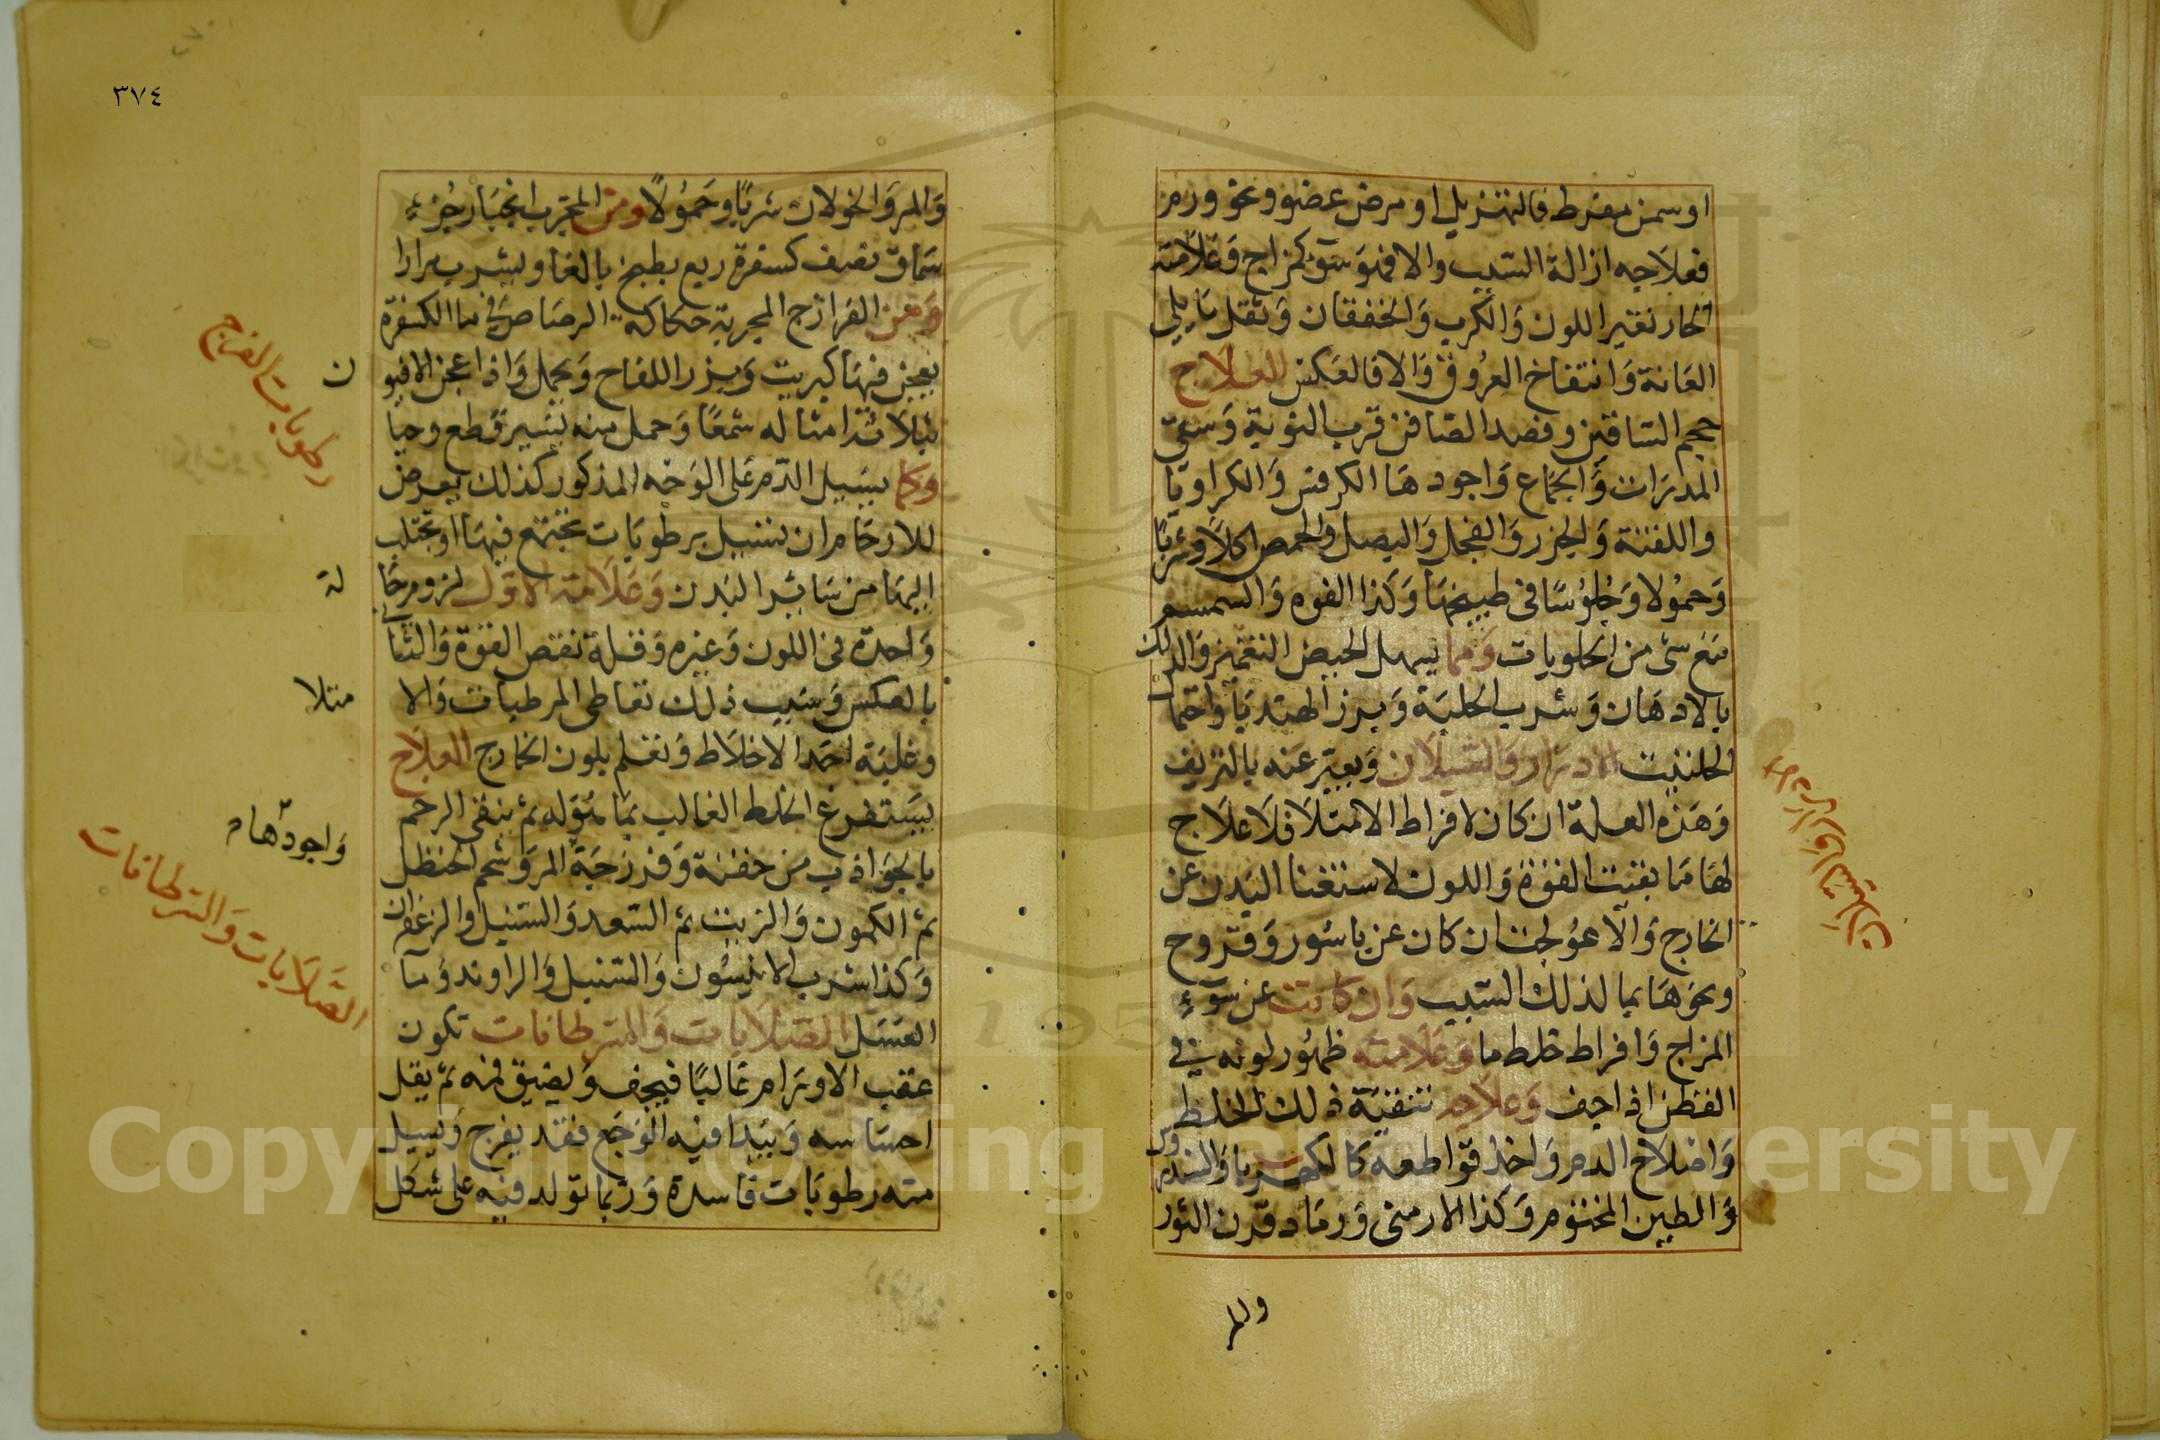 او سمن مفرط فالتهزيل او مرض عضو ونحو ورمز
فعلاجه ازالة السبب والا فهو سوء مزاج وعلامته
الحار تغير اللون والكرب والخفقان وثقل ما يلي
العانة وانتفاخ العروق والا فالعكس العلاج
حجم الساقين وفصد الصافن قرب النوبة وسقى
المدرات والجماع واجودها الكرفس والكراويا
واللفتنة والجزر والفجل والبصل والحمص اكلا وشربا
وحمولا وجلوسا في طبيخها وكذا الفوه والسمسم
مع شى من الحلويات ومما يسهل الحيض التغميز والدلك
بالادهان وشرب الحلبة وبزر الهندبا واحتمال
الحلتيت الادرار والسيلان ويعبر عنه بالنزيف
وهذه العلة ان كان لافراط الامتلا فلا علاج
لها ما بقيت القوة واللون لاستغنا البدن عن
الخارج والا عولجت ان كان عن باسور وقروح
ونحوها بما لذلك السبب وان كانت عن سوء
المزاج وافراط خلط ما وعلامته ظهور لونه في
القطن اذا جف وعلاجه تنقية ذلك الخلط
واصلاح الدم واخذ قواطعه كالكهربا والسندروس
والطين المختوم وكذا الارمنى ورماد قرن الثور
والمر
٣٧٤
والمر والخولان شربا وحمولا ومن المجرب انجبار جزء
سماق نصف كسفرة ربع يطبخ بالغا ويشرب مرارا
ومن الفرازج المجربة حكاكة الرصاص في ما الكسفرة
يعجن فيها كبريت وبزر اللفاح ويحمل واذا عجن الافيون
بثلاثة امثاله شمعا وحمل منه يسير قطع وحيا
وكما يسيل الدم على الوجه المذكور كذلك يعرض
للارحام ان تسيل برطوبات تجتمع فيها او تجتلب
اليها من سائر البدن وعلامة الاول لزومها حالة
واحدة في اللون وغيره وقلة نقص القوة والثانى
بالعكس وسبب ذلك تعاطى المرطبات والامتلا
وغلبة احد الاخلاط وتعلم بلون الخارج العلاج
يستفرغ الخلط الغالب بما هو له ثم ينقى الرحم
بالجواذب من حقنة وفرزجة المر وشحم الحنظل
ثم الكمون والزيت ثم السعد والسنبل والزعفران
وكذا شرب الانيسون والسنبل والراوند وما
العسل الصلابات والسرطانات تكون
عقب الاورام غالبا فيجف ويضيق فمه ثم يقل
احساسه ويبدا فيه الوجع فقد يفرج ويسيل
منه رطوبات فاسدة وربما تولد فيه على شكل
رطوبات الفرج
واجودها
الصلابات والسرطانات
Copyright © King Saud University
195